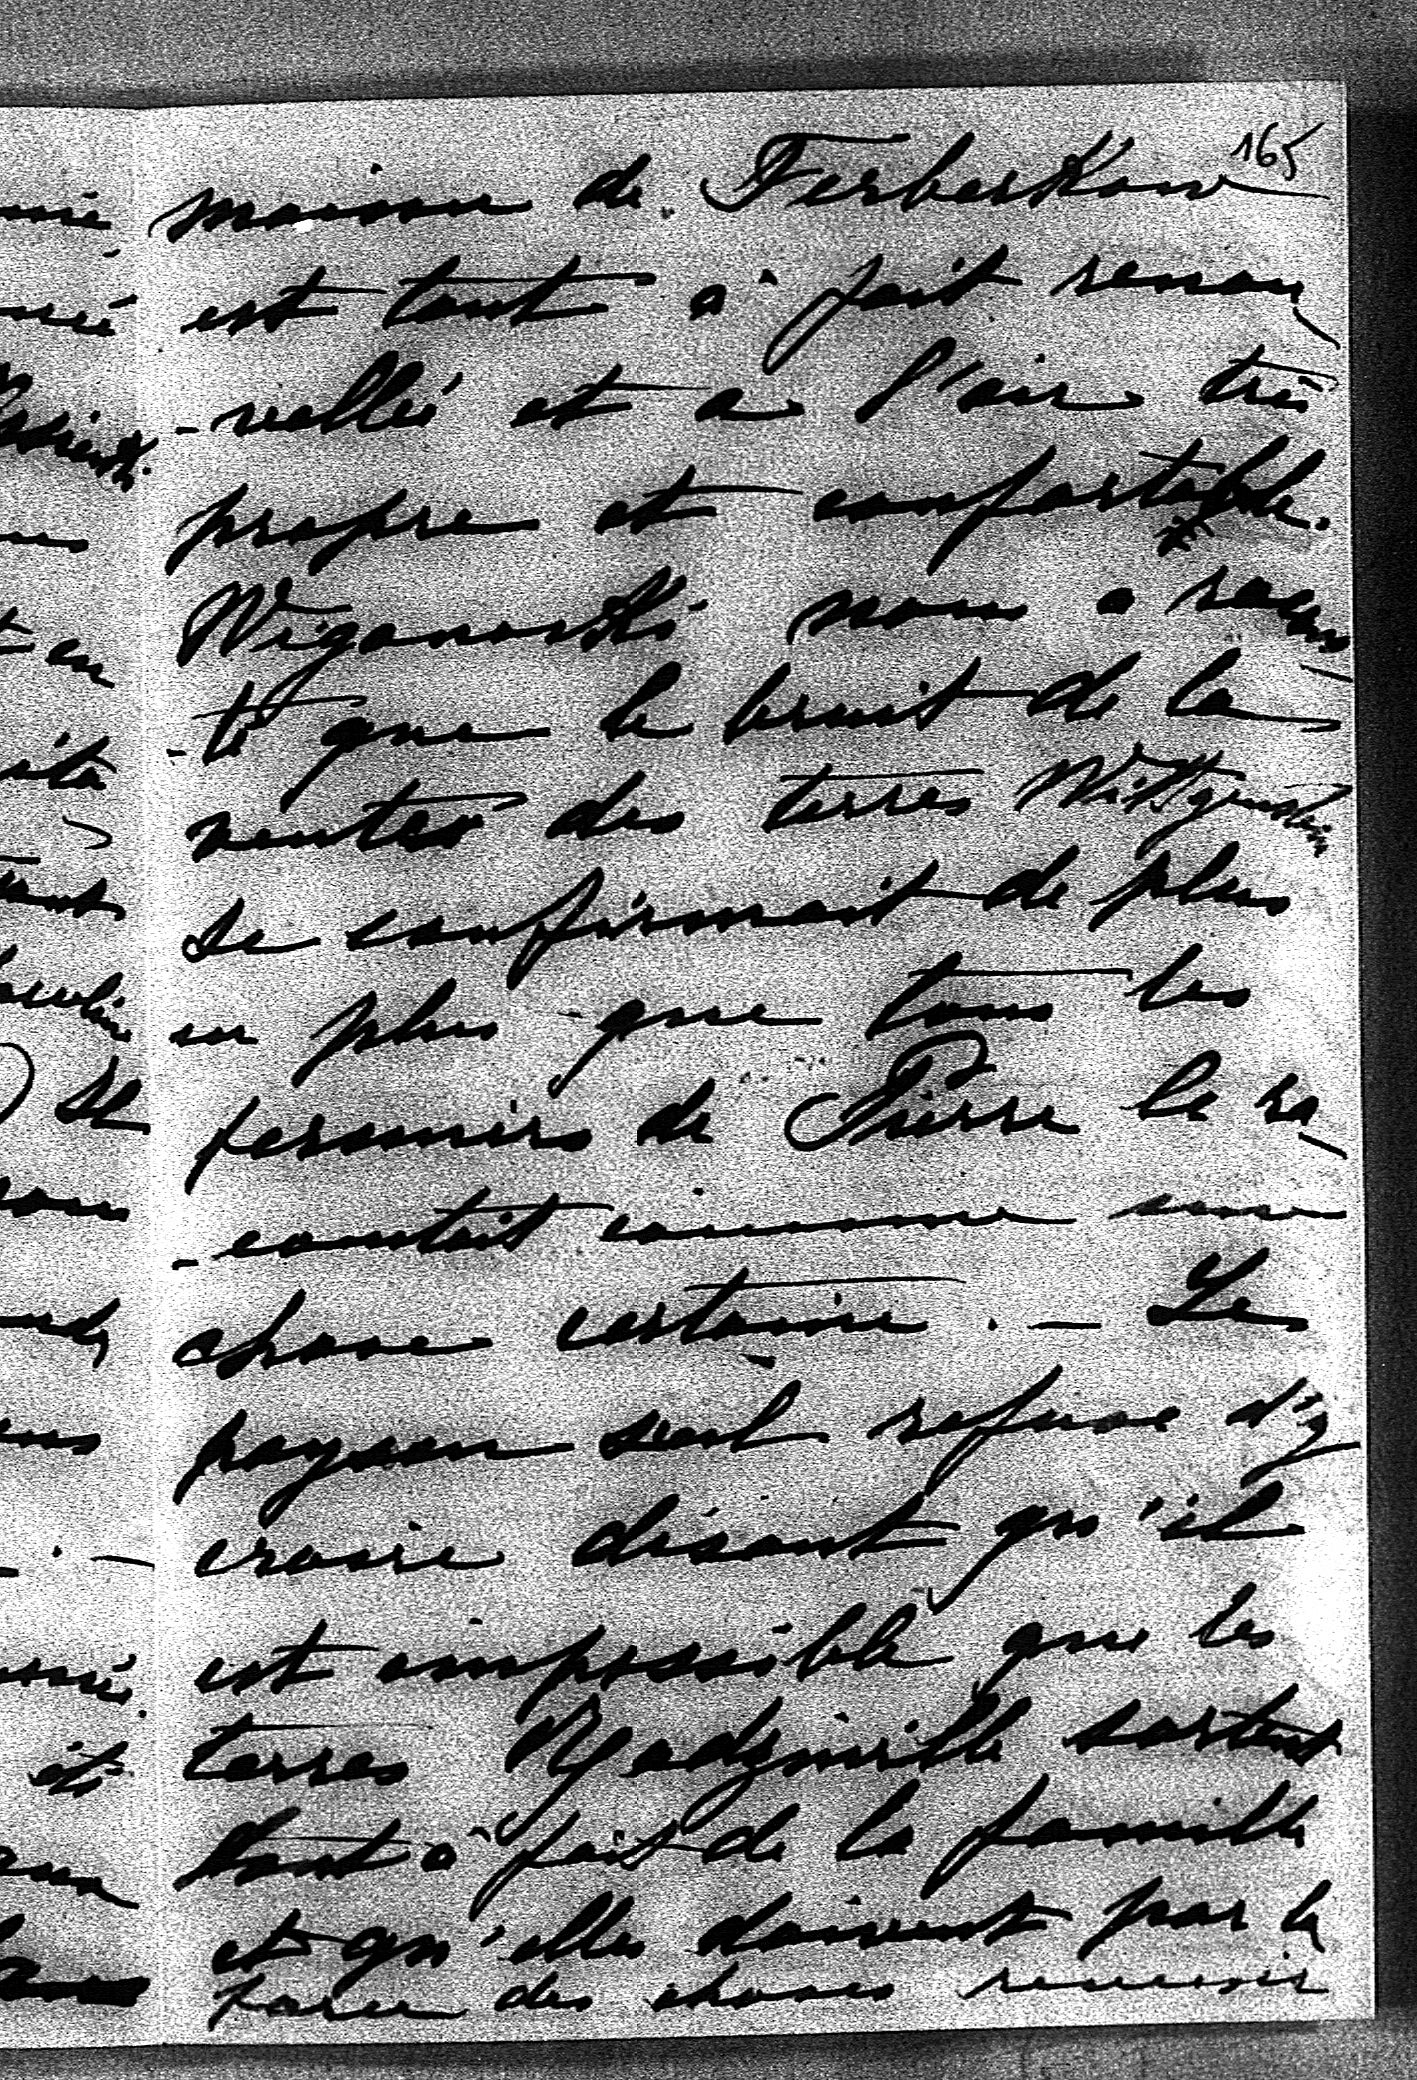 165
maison de Ferberkow
est tout à fait renou
-vellée et a l'air très
propre et confortable.
Wiganowski nous a racon
-té que le bruit de la
ventes des terres Wittgenstein
se confirmait de plus
en plus - que tous les
fermiers de Pierre le ra
-contait comme une
chose certaine. — Le
paysan seul refuse d'y
croire disant qu'il
est impossible que les
terres Radziwill sortent
tout à fait de la famille
et qu'elles doivent par la
force des choses revenir